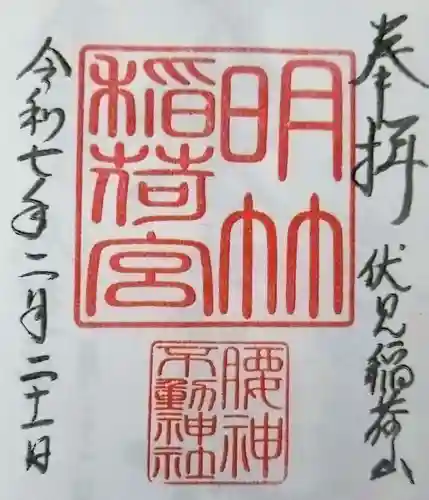 奉拝
伏見稲荷山
明竹
稲荷宮
腰神
不動神社
令和七年二月二十一日